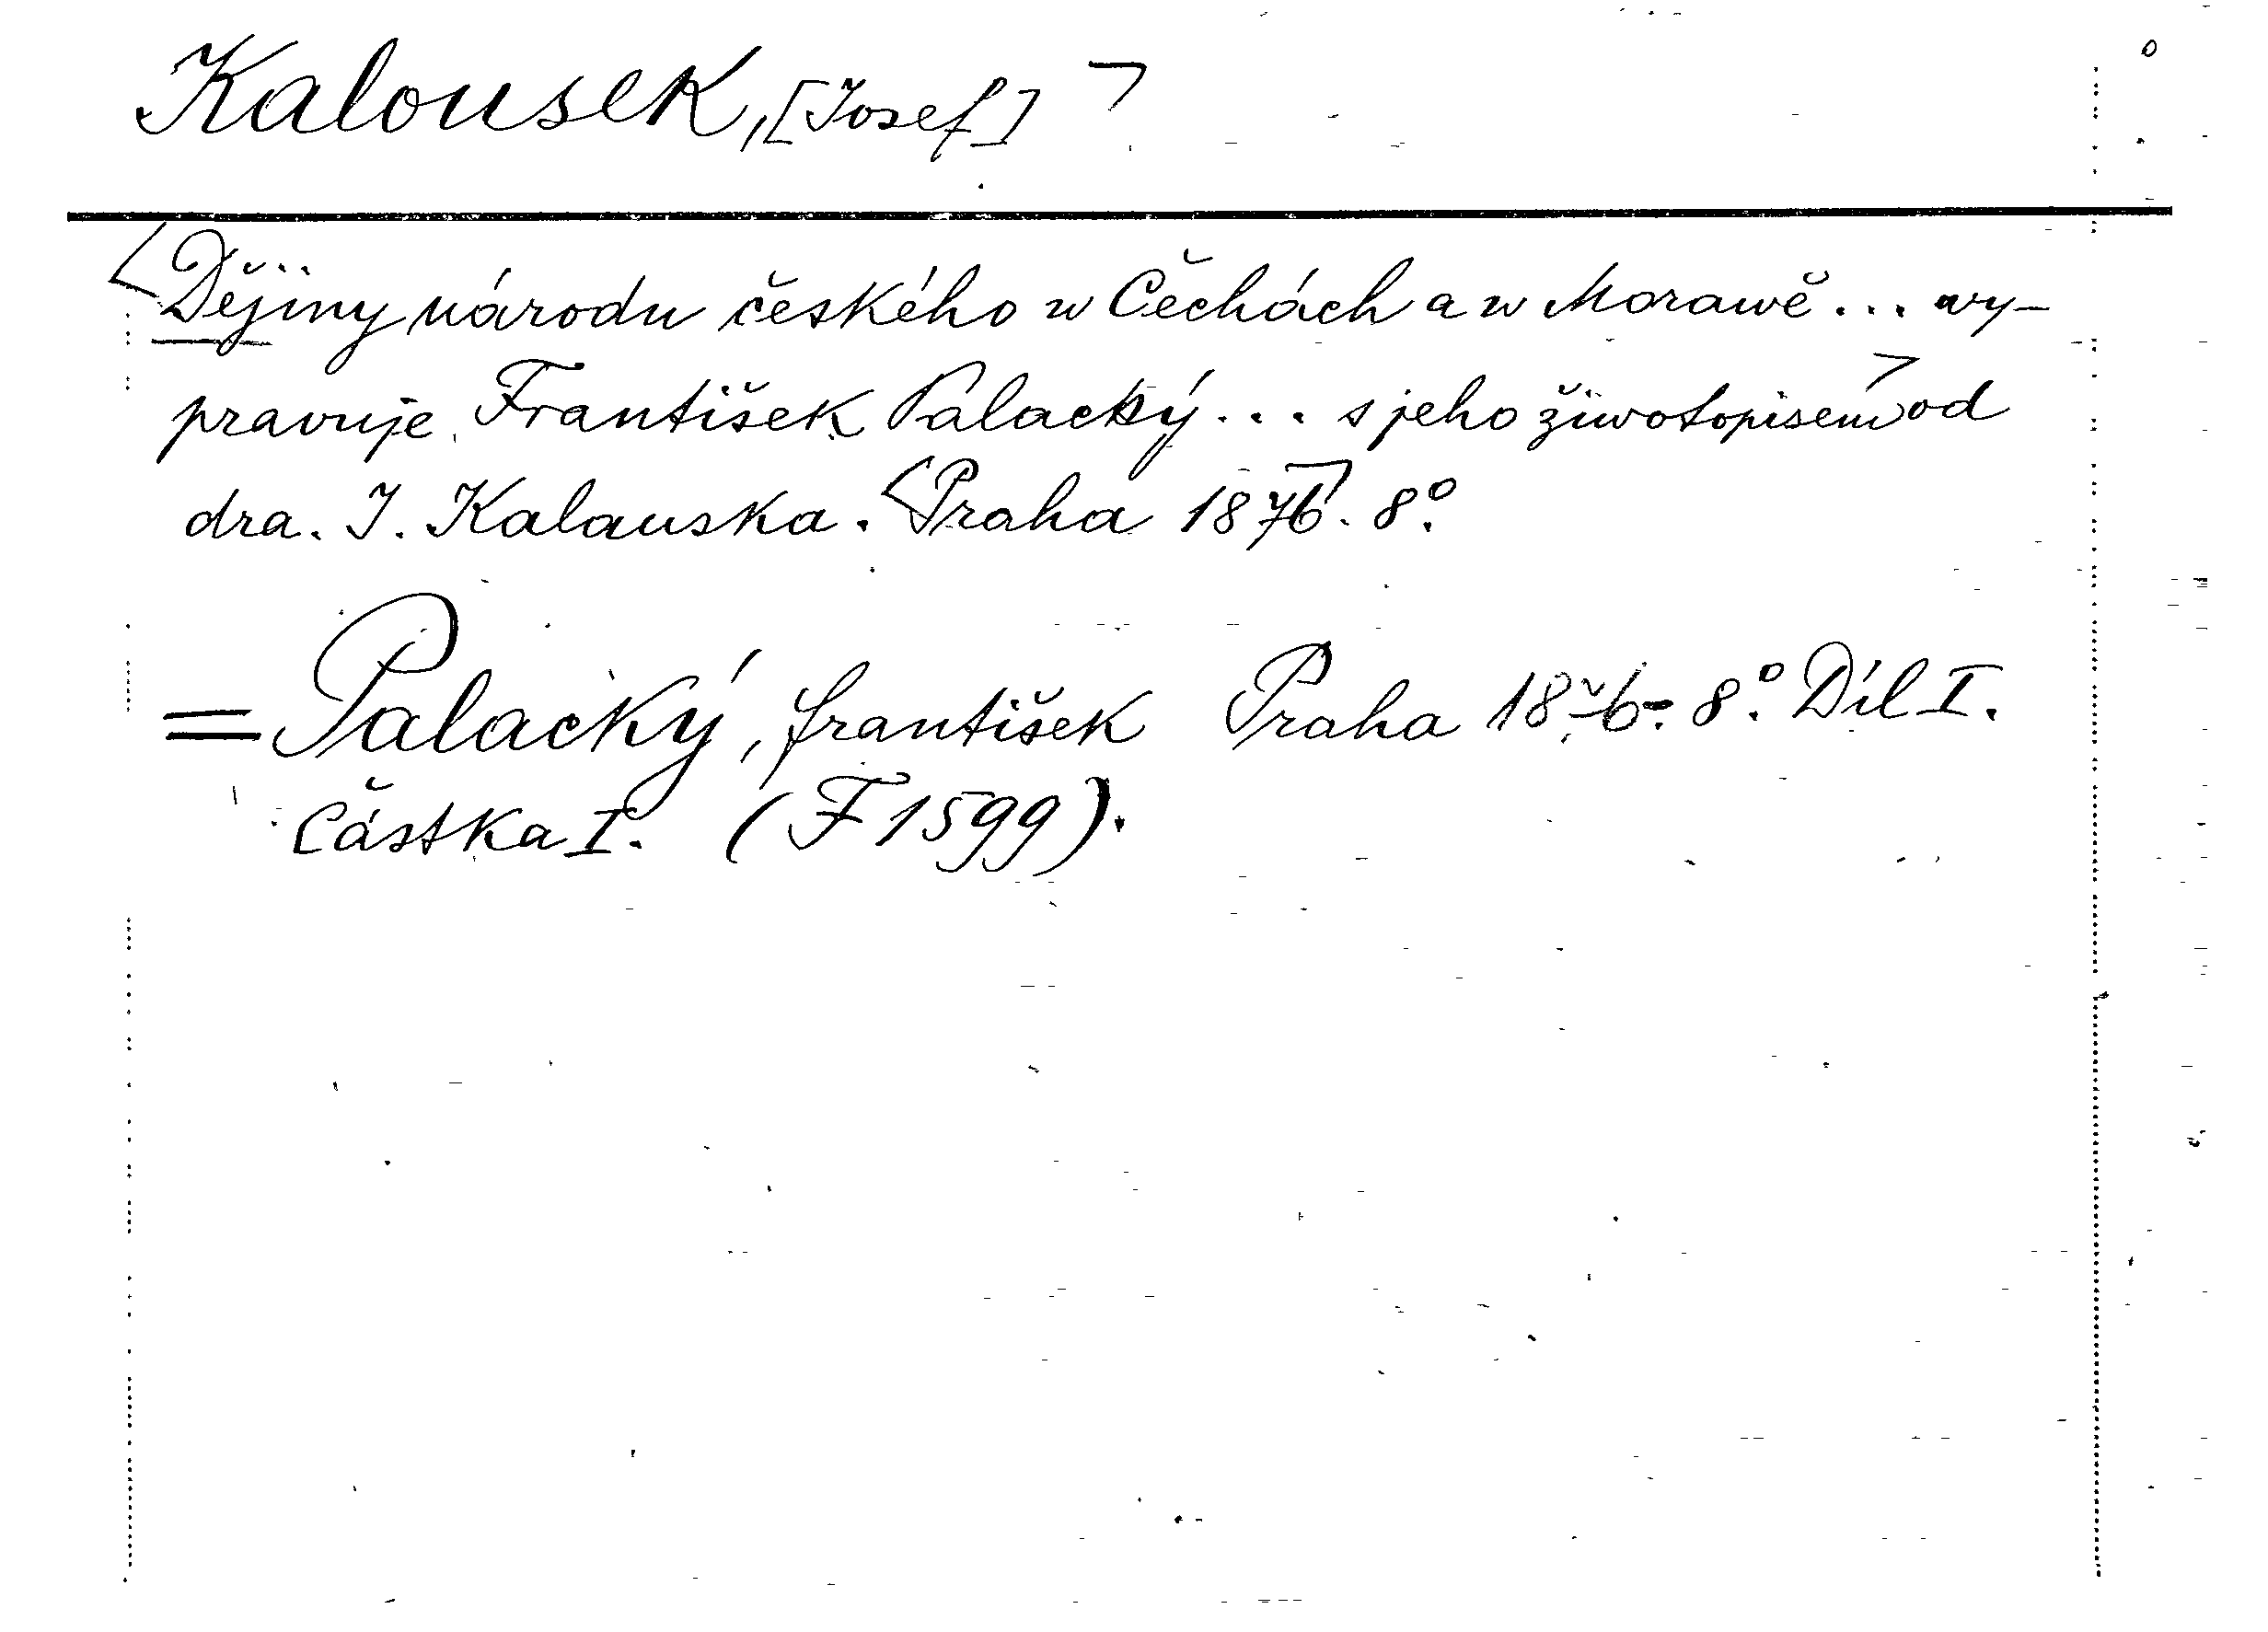 Kalousek, [Josef]
Dějiny národu českého w Čechách a w Morawě... wy-
pravuje František Palacký... s jeho žiwotopisem od
dra. J. Kalauska. Praha 1876. 8º.
= Palacký, František Praha 1876-. 8º. Díl I.
Částka I. (F 1599).